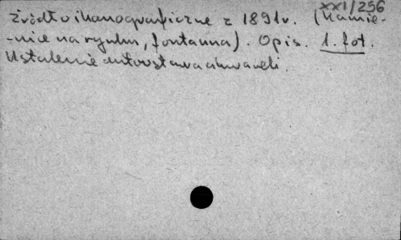 XXI/256
Źródło ikonograficzne z 1891r. (Kamie-
-nice na rynku, fontanna). Opis. 1. fot.
Ustalenie autorstwa akwareli.